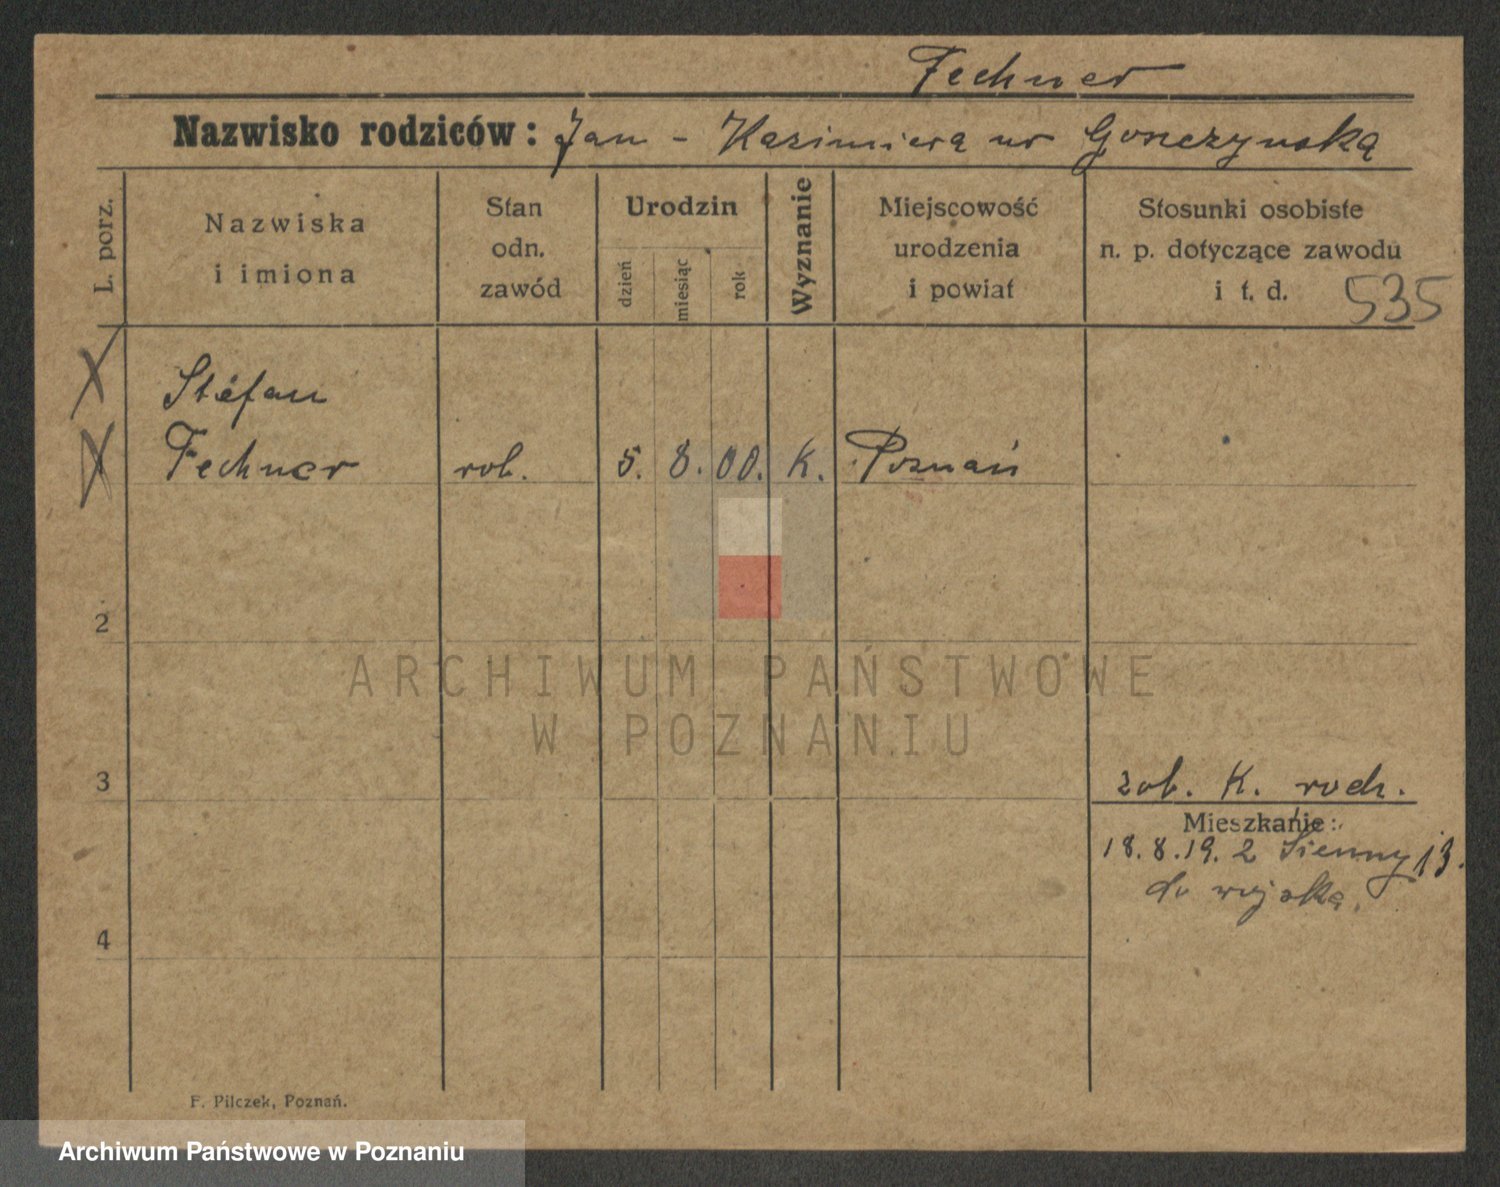 Fechner
Nazwisko rodziców: Jan - Kazimiera ur Gonczynską
L. porz.
Nazwiska
i imiona
Stan
odn.
zawód
Urodzin
dzień
miesiąc
rok
Wyznanie
Miejscowość
urodzenia
i powiat
Stosunki osobiste
n. p. dotyczące zawodu
i t. d.
535
Stefan
Fechner rob. 5. 8. 00. K. Poznań
2
ARCHIWUM PAŃSTWOWE
W POZNANIU
3
zob. K. rodz.
Mieszkanie:
18.8.19. 2 Sienny 13.
do wojska
4
F. Pilczek, Poznań.
Archiwum Państwowe w Poznaniu